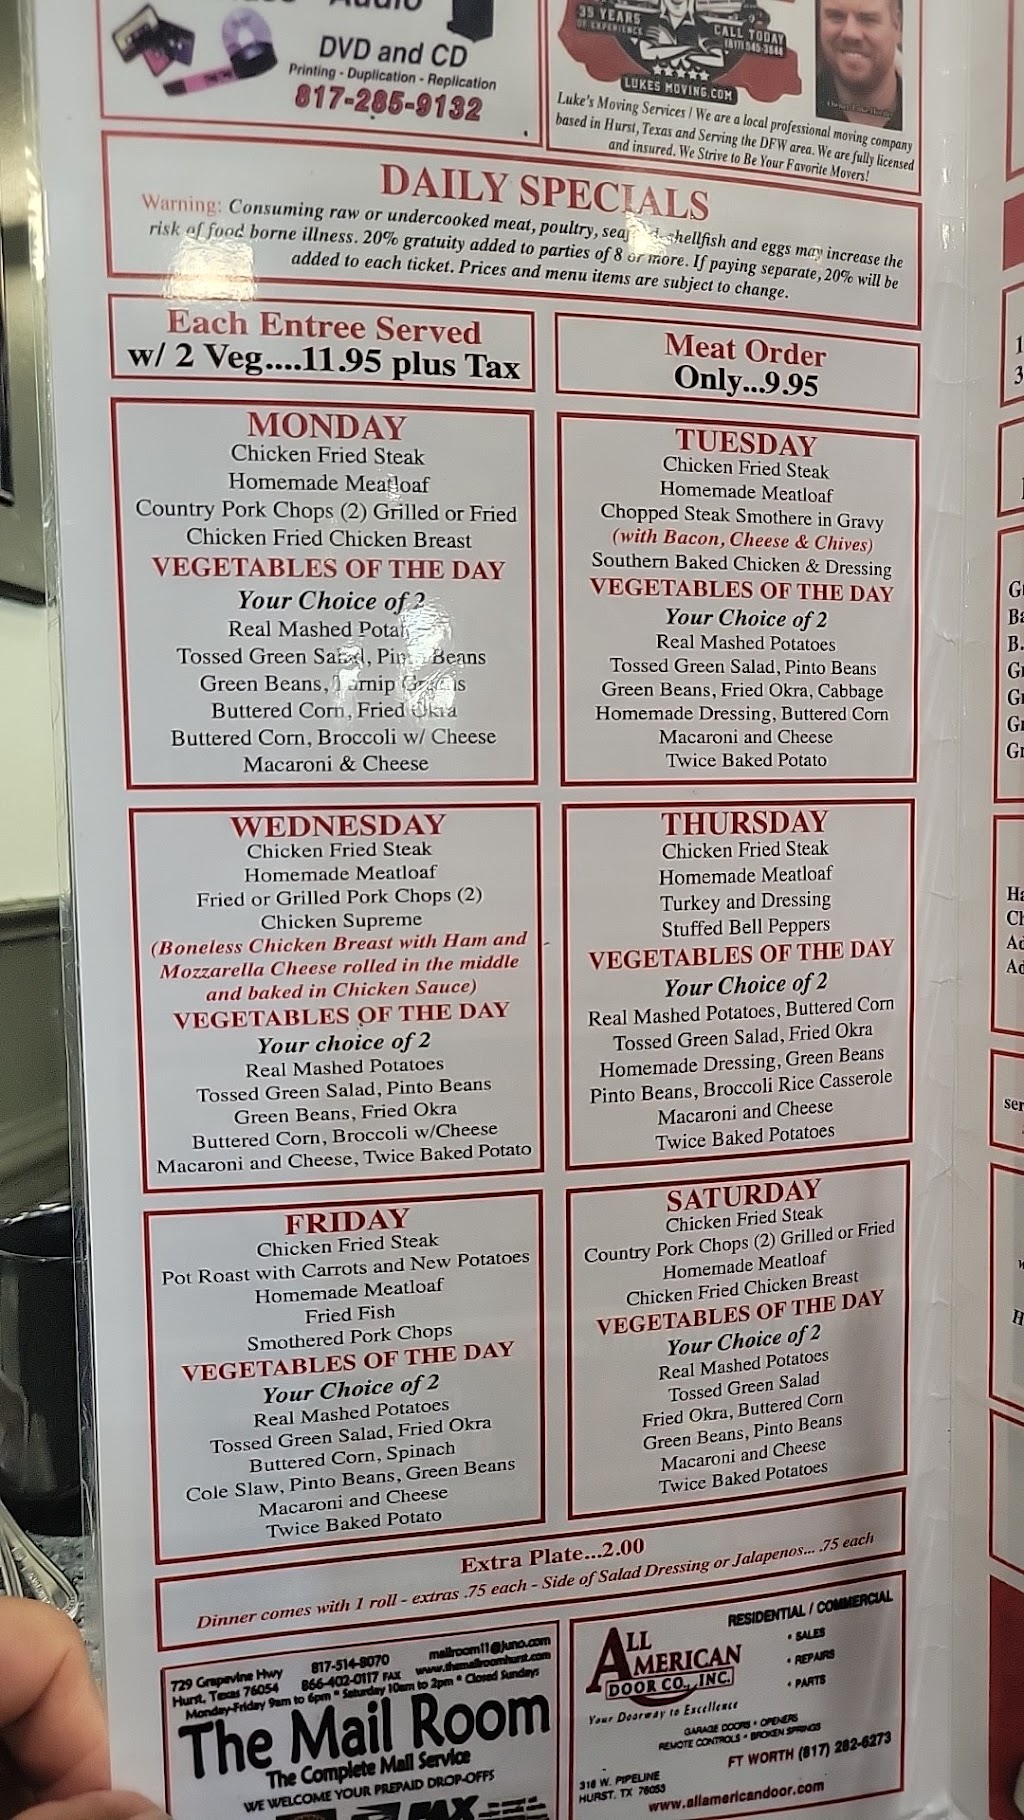 Audio
DVD and CD
Printing - Duplication - Replication
817-285-9132
35 YEARS
OF EXPERIENCE
CALL TODAY
LUKES MOVING.COM
Luke's Moving Services / We are a local professional moving company
based in Hurst, Texas and Serving the DFW area. We are fully licensed
and insured. We Strive to Be Your Favorite Movers!
DAILY SPECIALS
Warning: Consuming raw or undercooked meat, poultry, shellfish and eggs may increase the
risk of food borne illness. 20% gratuity added to parties of 8 or more. If paying separate, 20% will be
added to each ticket. Prices and menu items are subject to change.
Each Entree Served
w/ 2 Veg....11.95 plus Tax
Meat Order
Only...9.95
MONDAY
Chicken Fried Steak
Homemade Meatloaf
Country Pork Chops (2) Grilled or Fried
Chicken Fried Chicken Breast
VEGETABLES OF THE DAY
Your Choice of 2
Real Mashed
Tossed Green Salad, Pinto Beans
Green Beans, Turnip Greens
Buttered Corn, Fried Okra
Buttered Corn, Broccoli w/ Cheese
Macaroni & Cheese
TUESDAY
Chicken Fried Steak
Homemade Meatloaf
Chopped Steak Smothere in Gravy
(with Bacon, Cheese & Chives)
Southern Baked Chicken & Dressing
VEGETABLES OF THE DAY
Your Choice of 2
Real Mashed Potatoes
Tossed Green Salad, Pinto Beans
Green Beans, Fried Okra, Cabbage
Homemade Dressing, Buttered Corn
Macaroni and Cheese
Twice Baked Potato
WEDNESDAY
Chicken Fried Steak
Homemade Meatloaf
Fried or Grilled Pork Chops (2)
Chicken Supreme
(Boneless Chicken Breast with Ham and
Mozzarella Cheese rolled in the middle
and baked in Chicken Sauce)
VEGETABLES OF THE DAY
Your choice of 2
Real Mashed Potatoes
Tossed Green Salad, Pinto Beans
Green Beans, Fried Okra
Buttered Corn, Broccoli w/Cheese
Macaroni and Cheese, Twice Baked Potato
THURSDAY
Chicken Fried Steak
Homemade Meatloaf
Turkey and Dressing
Stuffed Bell Peppers
VEGETABLES OF THE DAY
Your Choice of 2
Real Mashed Potatoes, Buttered Corn
Tossed Green Salad, Fried Okra
Homemade Dressing, Green Beans
Pinto Beans, Broccoli Rice Casserole
Macaroni and Cheese
Twice Baked Potatoes
FRIDAY
Chicken Fried Steak
Pot Roast with Carrots and New Potatoes
Homemade Meatloaf
Fried Fish
Smothered Pork Chops
VEGETABLES OF THE DAY
Your Choice of 2
Real Mashed Potatoes
Tossed Green Salad, Fried Okra
Buttered Corn, Spinach
Cole Slaw, Pinto Beans, Green Beans
Macaroni and Cheese
Twice Baked Potato
SATURDAY
Chicken Fried Steak
Country Pork Chops (2) Grilled or Fried
Homemade Meatloaf
Chicken Fried Chicken Breast
VEGETABLES OF THE DAY
Your Choice of 2
Real Mashed Potatoes
Tossed Green Salad
Fried Okra, Buttered Corn
Green Beans, Pinto Beans
Macaroni and Cheese
Twice Baked Potatoes
Extra Plate...2.00
Dinner comes with 1 roll - extras .75 each - Side of Salad Dressing or Jalapenos... .75 each
729 Grapevine Hwy 817-514-8070 mailroom11@juno.com
Hurst, Texas 76054 866-402-0117 FAX www.themailroomhurst.com
Monday-Friday 9am to 6pm * Saturday 10am to 2pm * Closed Sundays
The Mail Room
The Complete Mail Service
WE WELCOME YOUR PREPAID DROP-OFFS
FAX
RESIDENTIAL / COMMERCIAL
ALL
AMERICAN
DOOR CO., INC.
Your Doorway to Excellence
• SALES
• REPAIRS
• PARTS
GARAGE DOORS • OPENERS
REMOTE CONTROLS • BROKEN SPRINGS
FT WORTH (817) 282-6273
316 W. PIPELINE
HURST, TX 76053
www.allamericandoor.com